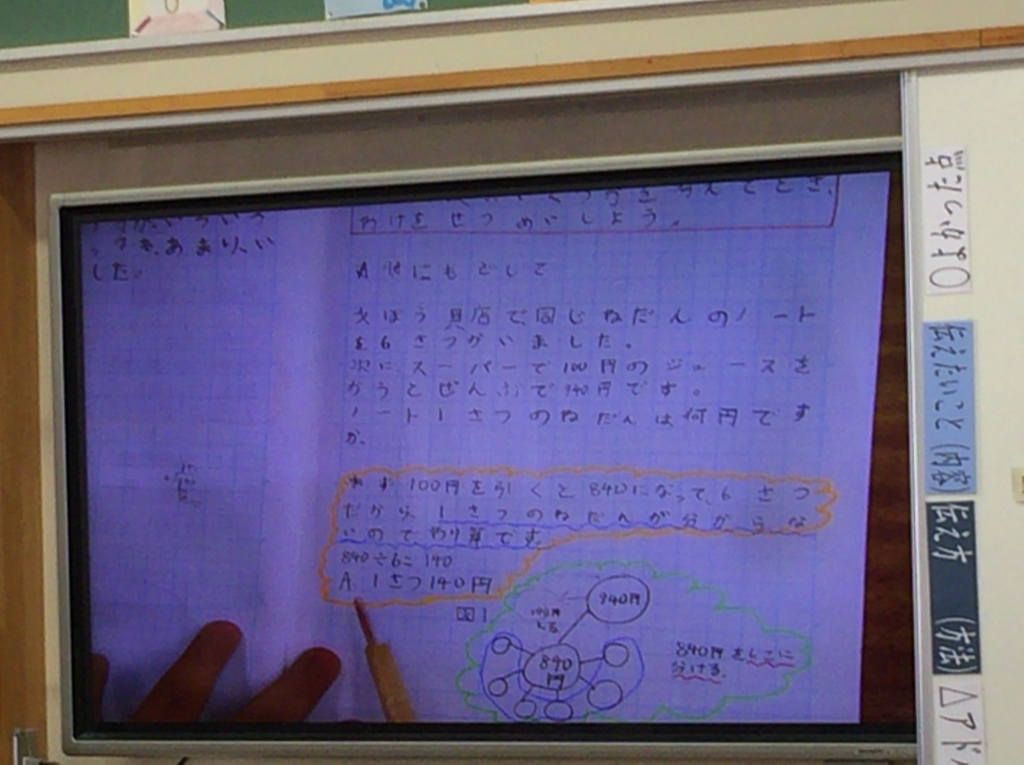 あまり、い
した。
わけをせつめいしよう。
もどして
文ぼう具店で、同じねだんのノート
を6さつかいました。
次に、スーパーで100円のジュースを
かうとぜんぶで940円です。
ノート1さつのねだんは何円です
か。
まず100円を引くと840になって、6さつ
だから1さつのねだんが分からな
いのでわり算です。
840÷6=140
A 1さつ140円
図1
940円
840
円
840円を6こに
分ける。
伝えたいこと(内容)
伝え方(方法)
△アド